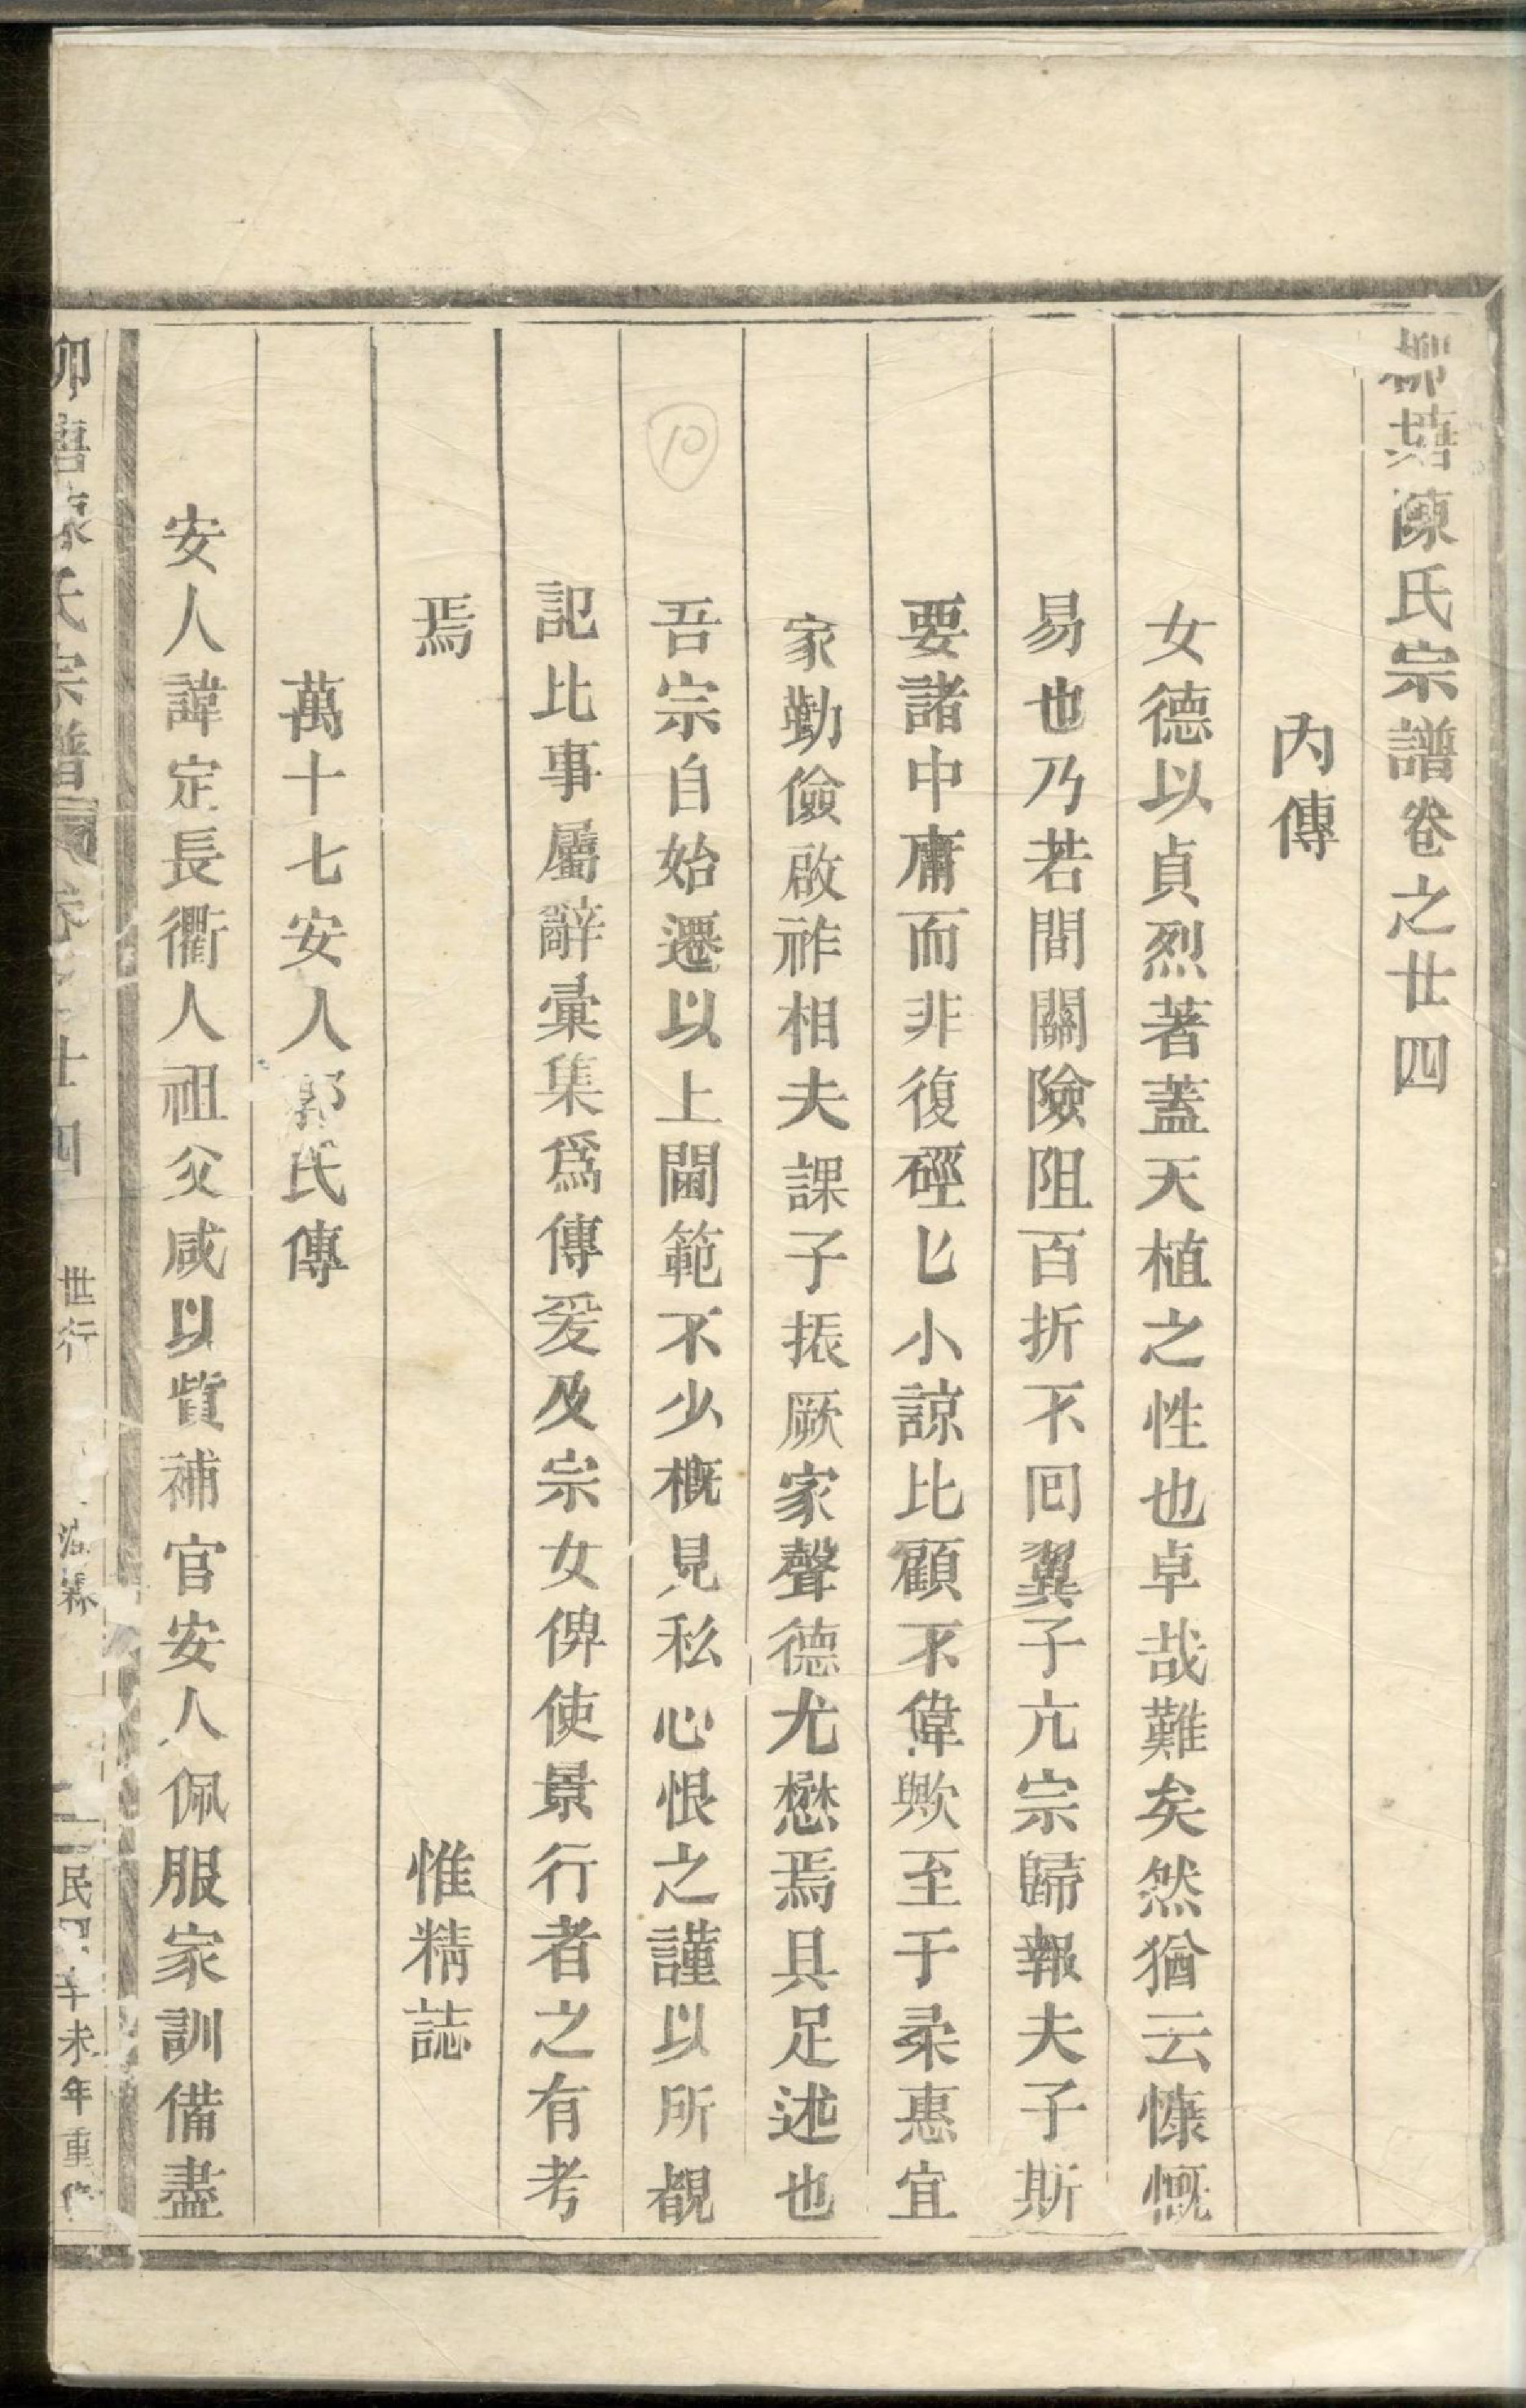 柳塘陳氏宗譜卷之廿四
內傳
女德以貞烈著蓋天植之性也卓哉難矣然猶云慷慨
易也乃若間關險阻百折不回翼子亢宗歸報夫子斯
要諸中庸而非復硜匕小諒比顧不偉歟至于柔惠宜
家勤儉啟祚相夫課子振厥家聲德尤懋焉具足述也
吾宗自始遷以上閫範不少概見私心恨之謹以所覩
記比事屬辭彙集為傳爰及宗女俾使景行者之有考
焉 惟精誌
萬十七安人郭氏傳
安人諱定長衢人祖父咸以貲補官安人佩服家訓備盡
柳唐陳氏宗譜 卷之廿四 世行 民國辛未年重修
10